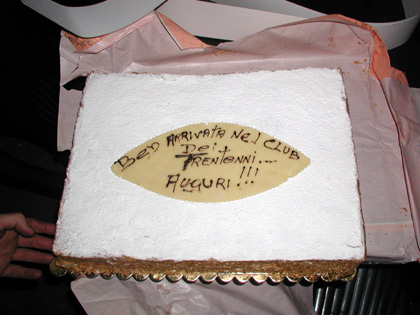 BEN ARRIVATA NEL CLUB
DEi +
TRENTENNI....
AUGURI!!!